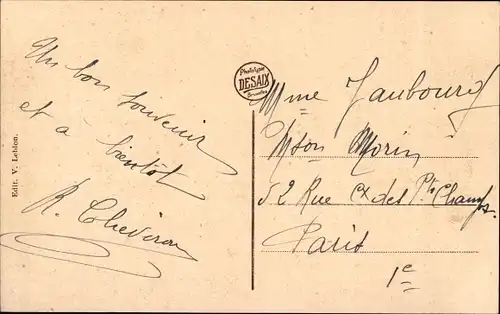 Un bon souvenir
et à bientôt
R. Cheviron
Edit. V. Leblon.
Phototypie
DESAIX
Bruxelles
Mme Jaubourg
Mson Morin
52 Rue Cx des Pts Champs
Paris
1e